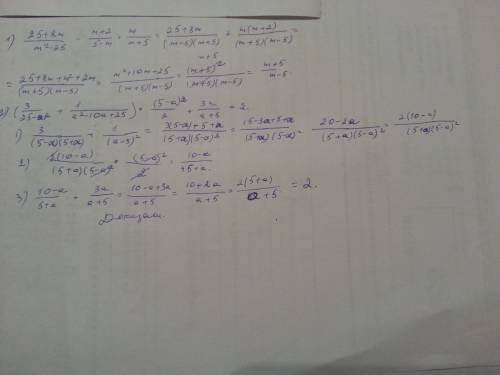 1) (25+8m)/(m²-25) - (m+2)/(5-m) * m/(m+5) = (25+8m)/((m-5)(m+5)) + (m(m+2))/((m+5)(m-5)) =
= (25+8m+m²+2m)/((m+5)(m-5)) = (m²+10m+25)/((m+5)(m-5)) = (m+5)²/((m+5)(m-5)) = (m+5)/(m-5)
2) (3/(25-a²) + 1/(a²-10a+25)) * (5-a)²/2 + 3a/(a+5) = 2.
1) 3/((5-a)(5+a)) + 1/(a-5)² = (3(5-a)+5+a)/((5+a)(5-a)²) = (15-3a+5+a)/((5+a)(5-a)² = (20-2a)/((5+a)(5-a)²) = (2(10-a))/((5+a)(5-a)²
2) (2(10-a))/((5+a)(5-a)²) * (5-a)²/2 = (10-a)/(5+a)
3) (10-a)/(5+a) + 3a/(a+5) = (10-a+3a)/(a+5) = (10+2a)/(a+5) = (2(5+a))/(a+5) = 2.
Доказали.